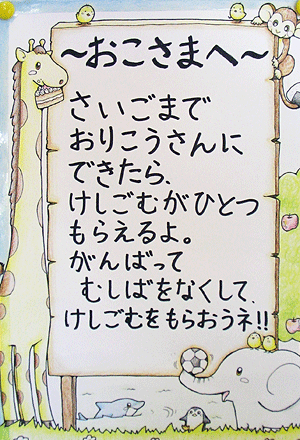 ～おこさまへ～
さいごまで
おりこうさんに
できたら、
けしごむがひとつ
もらえるよ。
がんばって
むしばをなくして、
けしごむをもらおうネ!!